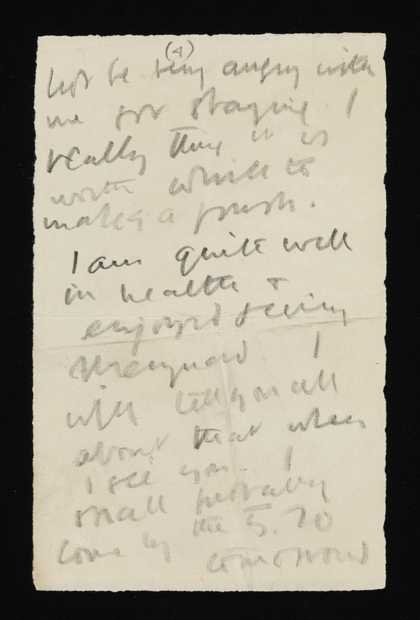 (4)
not be very angry with
me for staying. I
really think it is
worth while to
make a push.
I am quite well
in health &
enjoyed seeing
I
will tell you all
about that when
I see you. I
shall probably
come by the 5.20
tomorrow